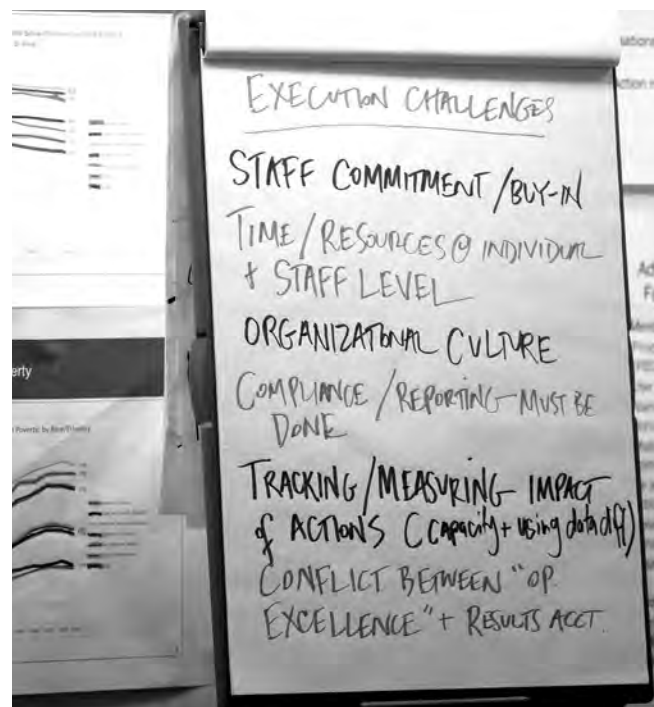 EXECUTION CHALLENGES
STAFF COMMITMENT / BUY-IN
TIME / RESOURCES @ INDIVIDUAL
+ STAFF LEVEL
ORGANIZATIONAL CULTURE
COMPLIANCE / REPORTING - MUST BE
DONE
TRACKING / MEASURING IMPACT
of ACTIONS (capacity + using data diff)
CONFLICT BETWEEN "OP.
EXCELLENCE" + RESULTS ACCT.
erty
Poverty by Race/Ethnicity